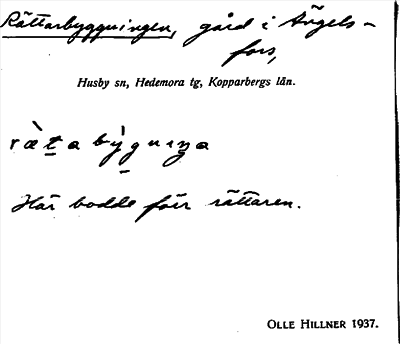 Rättarbyggningen, gård i Ängels-
fors,
Husby sn, Hedemora tg, Kopparbergs län.
ræ̀ta bỳgnıŋa
Här bodde förr rättaren.
OLLE HILLNER 1937.